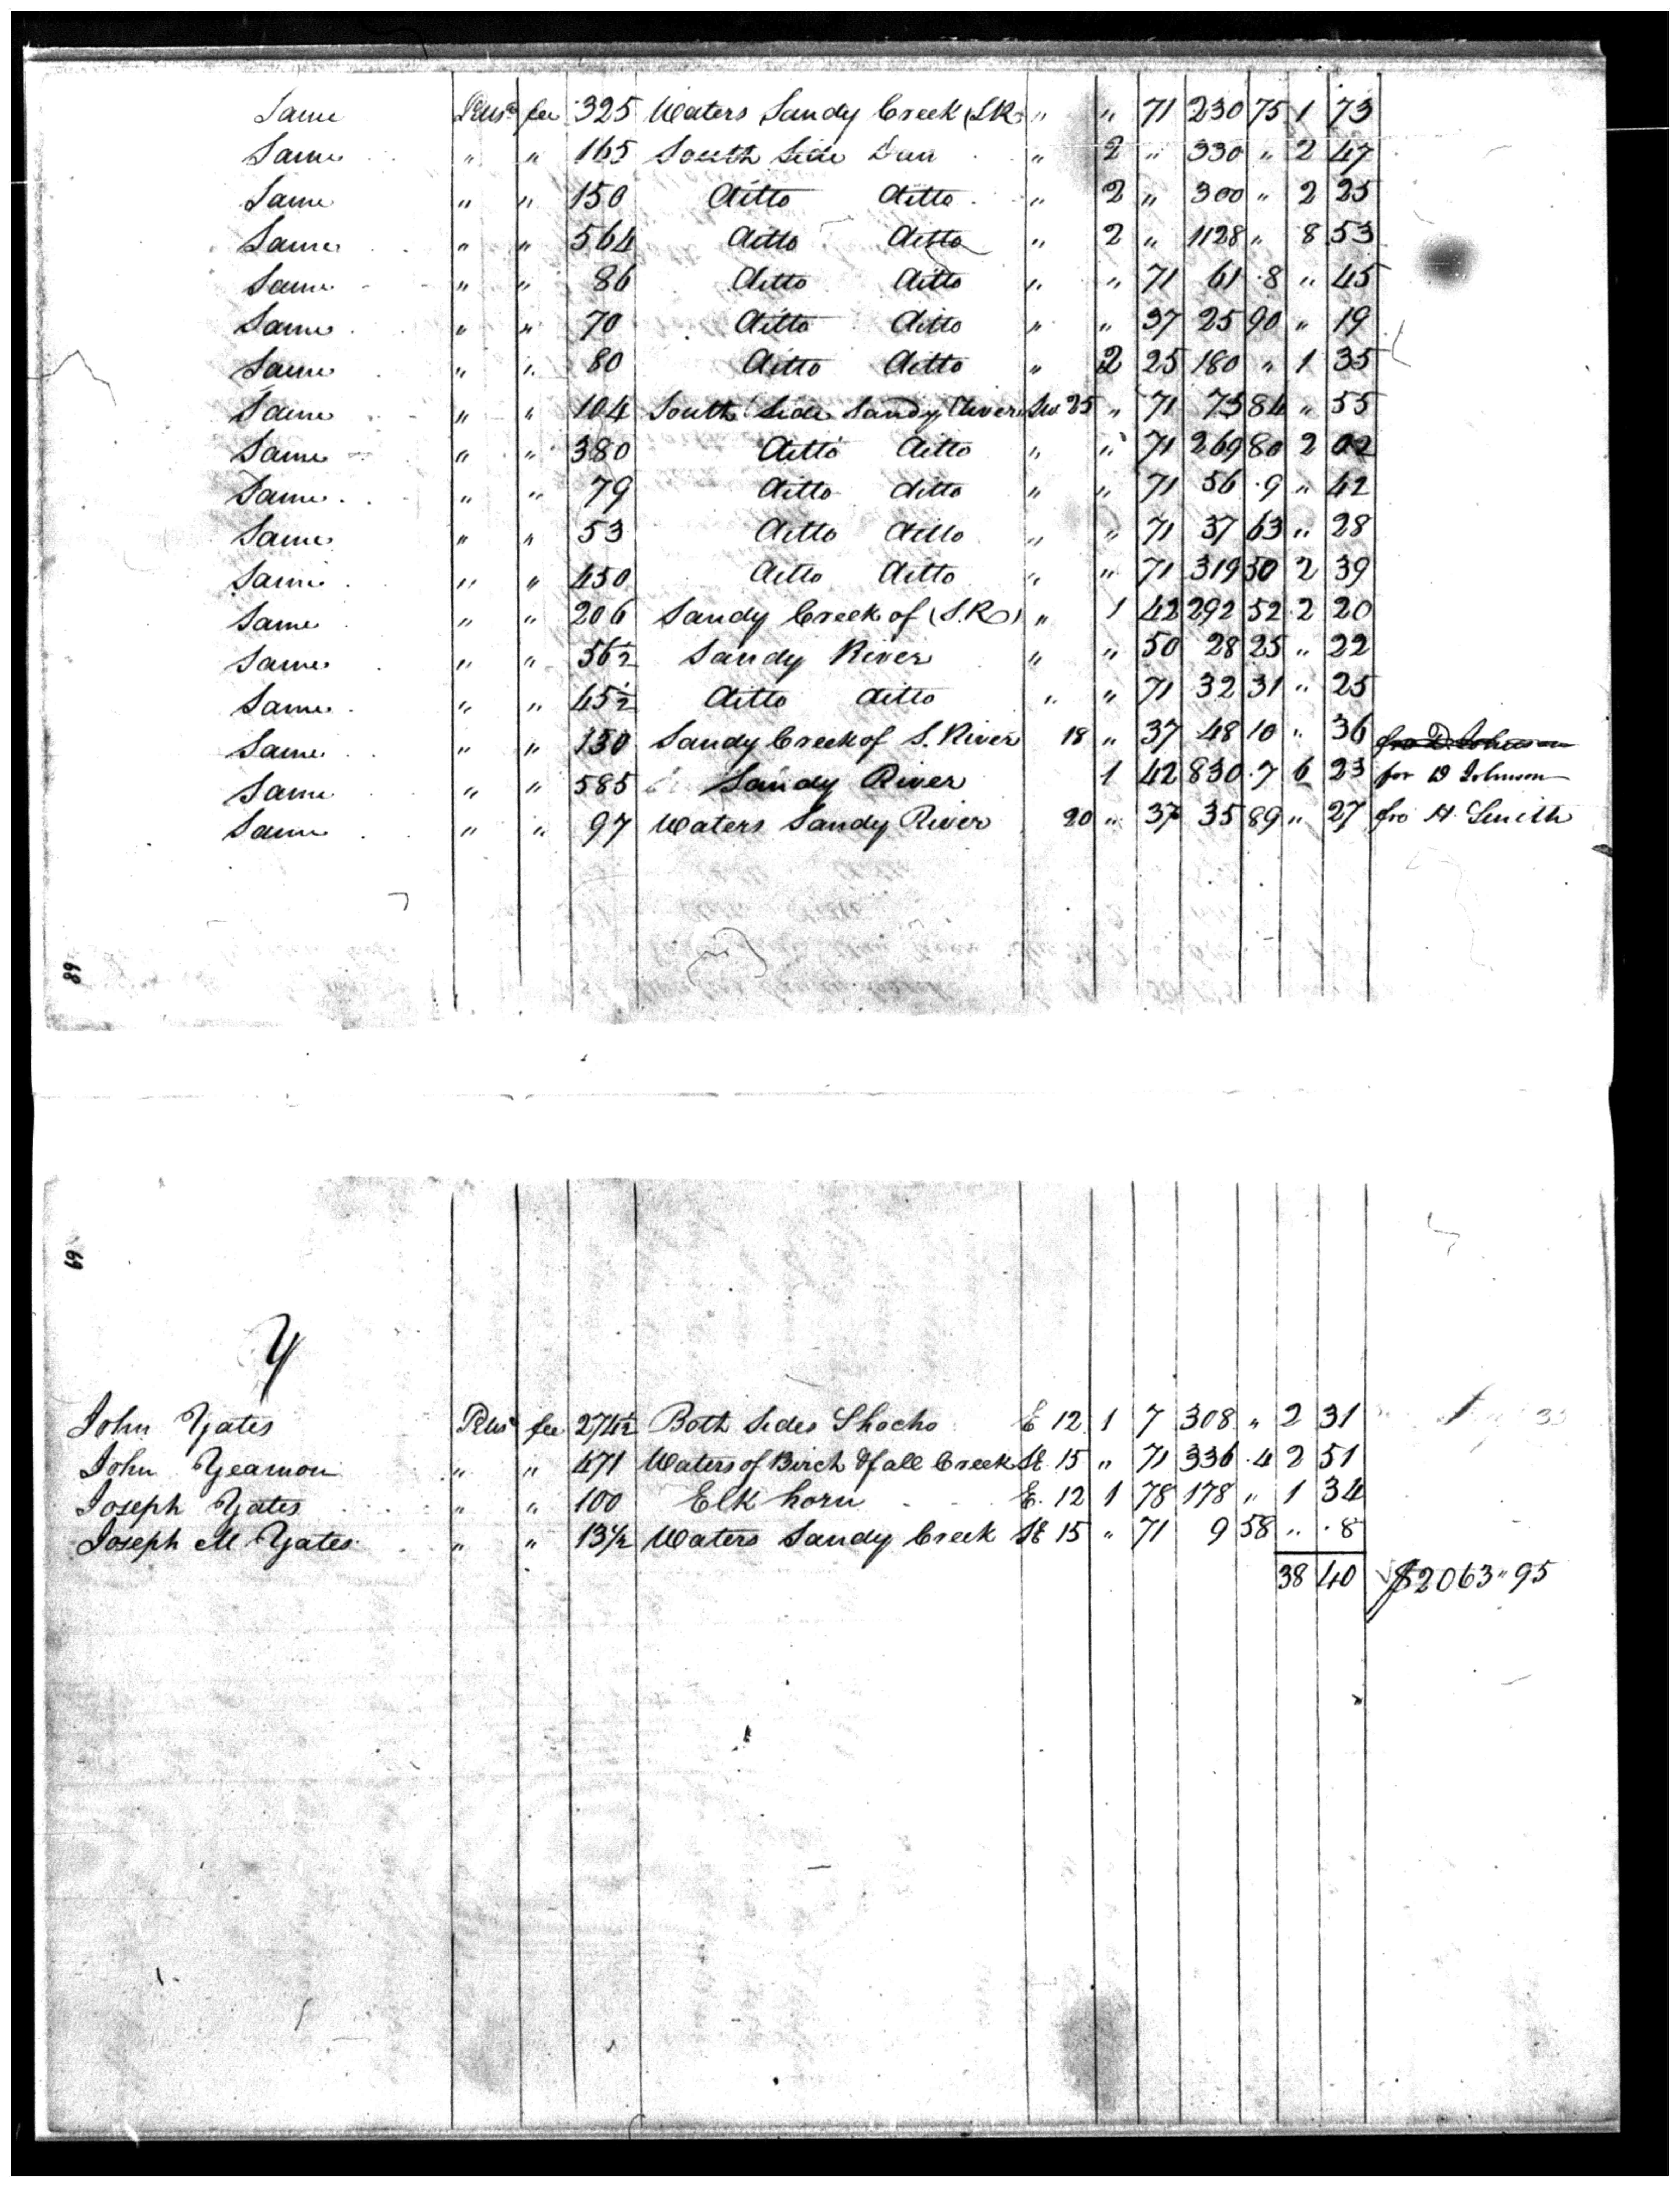 Same Pitts^a fee 325 Waters Sandy Creek (S.R) " " 71 230 75 1 73
Same " " 165 South Side Dan " 2 " 330 " 2 47
Same " " 150 ditto ditto " 2 " 300 " 2 25
Same " " 564 ditto ditto " 2 " 1128 " 8 53
Same " " 86 ditto ditto " " 71 61 .8 " 45
Same " " 70 ditto ditto " " 37 25 90 " 19
Same " " 80 ditto ditto " 2 25 180 " 1 35
Same " " 104 South Side Sandy River Sw. 25 " 71 73 84 " 55
Same " " 380 ditto ditto " " 71 269 80 2 02
Same " " 79 ditto ditto " " 71 56 .9 " 42
Same " " 53 ditto ditto " " 71 37 63 " 28
Same " " 450 ditto ditto " " 71 319 50 2 39
Same " " 206 Sandy Creek of (S.R) " 1 42 292 52 2 20
Same " " 56½ Sandy River " " 50 28 25 " 22
Same " " 45½ ditto ditto " " 71 32 31 " 25
Same " " 130 Sandy Creek of S. River 18 " 37 48 10 " 36 fro D. Johnson
Same " " 585 Sandy River 1 42 830 .7 6 23 for D Johnson
Same " " 97 Waters Sandy River 20 " 37 35 89 " 27 fro H. Smith
68
69
Y
John Yates fee 274½ Both Sides Shocho E 12 1 7 308 " 2 31
John Yeamon " " 471 Waters of Birch & fall Creek St. 15 " 71 336 .4 2 51
Joseph Yates " " 100 Elk horn E. 12 1 78 178 " 1 34
Joseph M Yates " " 13½ Waters Sandy Creek St 15 " 71 9 58 " .8
38 40 $2063 " 95